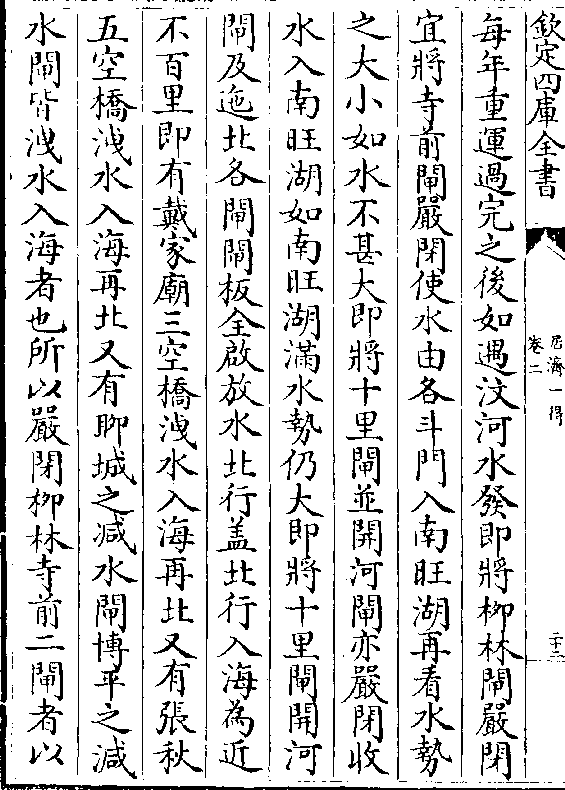 欽定四庫全書
居濟一得
卷二
二十二
每年重運過完之後如遇汶河水發即將柳林閘嚴閉
宜將寺前閘嚴閉使水由各斗門入南旺湖再看水勢
之大小如水不甚大即將十里閘並開河閘亦嚴閉收
水入南旺湖如南旺湖滿水勢仍大即將十里閘開河
閘及迤北各閘閘板全啟放水北行盖北行入海為近
不百里即有戴家廟三空橋洩水入海再北又有張秋
五空橋洩水入海再北又有聊城之减水閘博平之减
水閘皆洩水入海者也所以嚴閉柳林寺前二閘者以